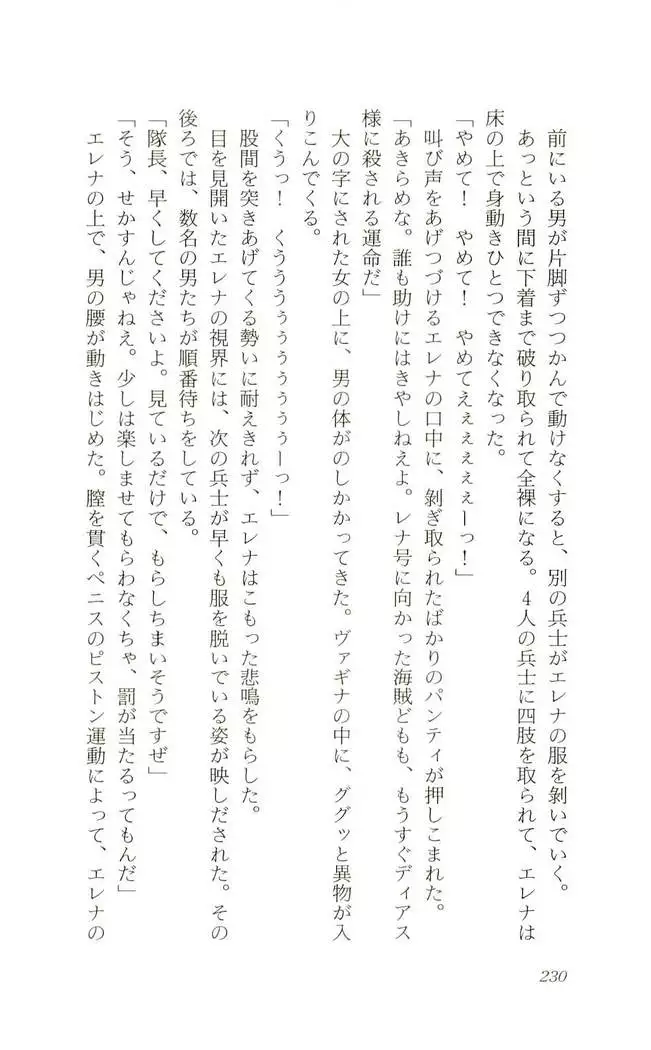 前にいる男が片脚ずつつかんで動けなくすると、別の兵士がエレナの服を剝いでいく。
あっという間に下着まで破り取られて全裸になる。4人の兵士に四肢を取られて、エレナは
床の上で身動きひとつできなくなった。
「やめて！　やめて！　やめてえぇぇぇぇーっ！」
叫び声をあげつづけるエレナの口中に、剝ぎ取られたばかりのパンティが押しこまれた。
「あきらめな。誰も助けにはきやしねえよ。レナ号に向かった海賊どもも、もうすぐディアス
様に殺される運命だ」
大の字にされた女の上に、男の体がのしかかってきた。ヴァギナの中に、ググッと異物が入
りこんでくる。
「くうっ！　くうううぅぅぅぅぅぅーっ！」
股間を突きあげてくる勢いに耐えきれず、エレナはこもった悲鳴をもらした。
目を見開いたエレナの視界には、次の兵士が早くも服を脱いでいる姿が映しだされた。その
後ろでは、数名の男たちが順番待ちをしている。
「隊長、早くしてくださいよ。見ているだけで、もらしちまいそうですぜ」
「そう、せかすんじゃねえ。少しは楽しませてもらわなくちゃ、罰が当たるってもんだ」
エレナの上で、男の腰が動きはじめた。膣を貫くペニスのピストン運動によって、エレナの
230